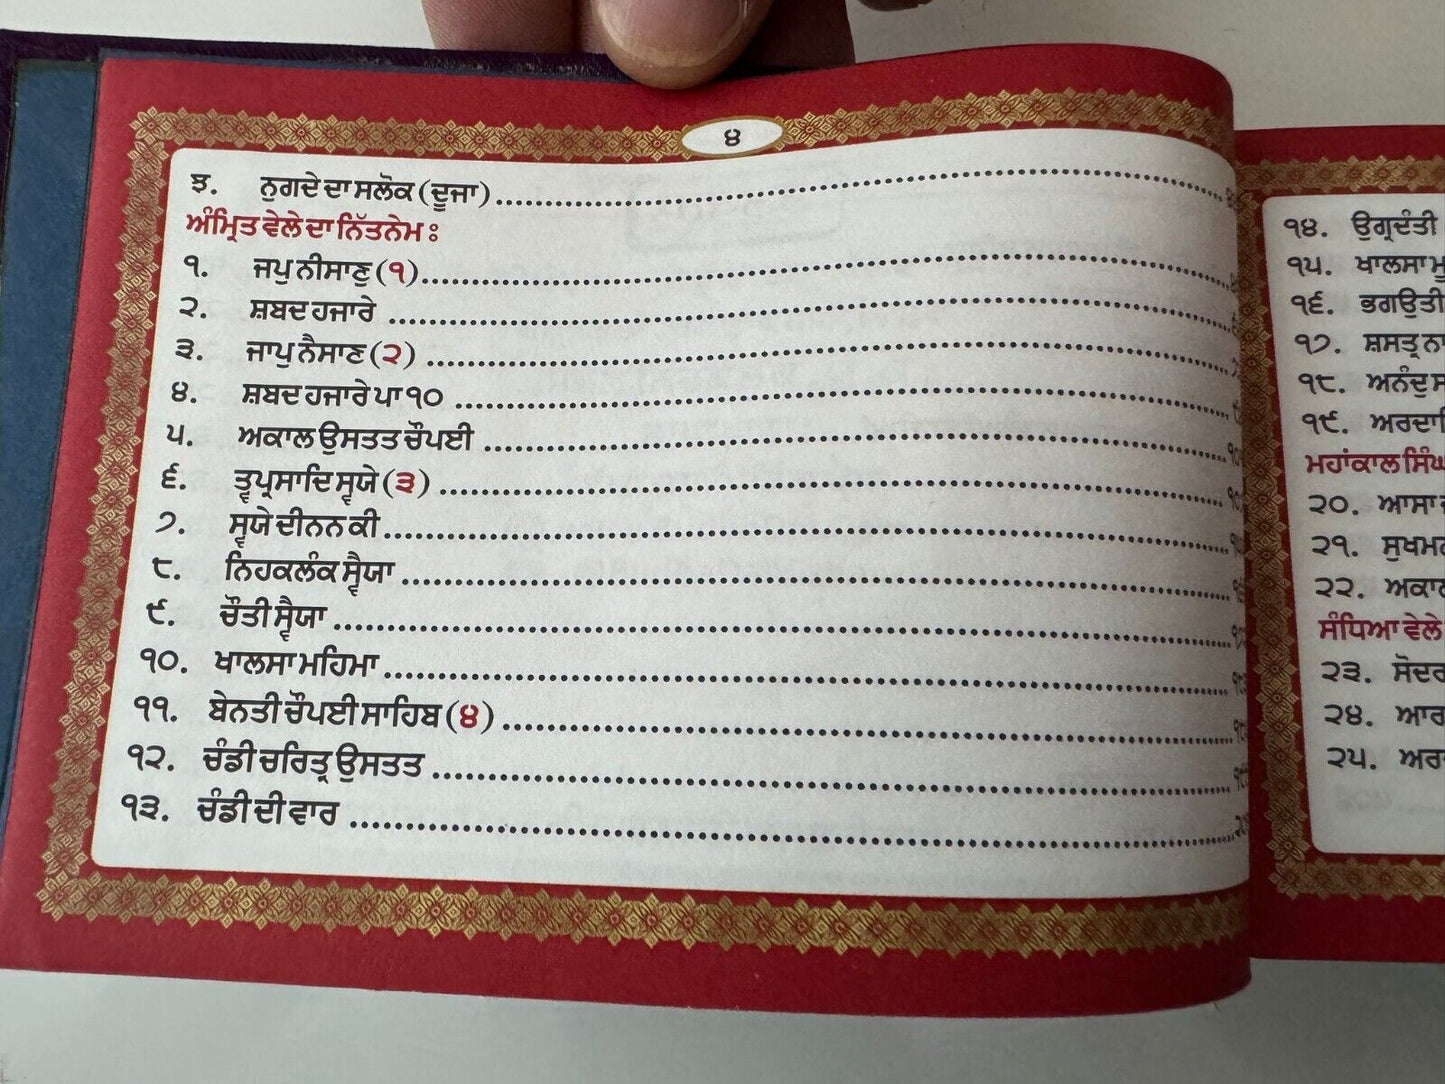 ੪
ਝ. ਨੁਗਦੇ ਦਾ ਸਲੋਕ (ਦੂਜਾ)
ਅੰਮ੍ਰਿਤ ਵੇਲੇ ਦਾ ਨਿੱਤਨੇਮ :
੧. ਜਪੁ ਨੀਸਾਣੁ (੧)
੨. ਸ਼ਬਦ ਹਜਾਰੇ
੩. ਜਾਪੁ ਨੈਸਾਣ (੨)
੪. ਸ਼ਬਦ ਹਜਾਰੇ ਪਾ ੧੦
੫. ਅਕਾਲ ਉਸਤਤ ਚੌਪਈ
੬. ਤ੍ਵਪ੍ਰਸਾਦਿ ਸ੍ਵਯੇ (੩)
੭. ਸ੍ਵਯੇ ਦੀਨਨ ਕੀ
੮. ਨਿਹਕਲੰਕ ਸ੍ਵੈਯਾ
੯. ਚੌਤੀ ਸ੍ਵੈਯਾ
੧੦. ਖਾਲਸਾ ਮਹਿਮਾ
੧੧. ਬੇਨਤੀ ਚੌਪਈ ਸਾਹਿਬ (੪)
੧੨. ਚੰਡੀ ਚਰਿਤ੍ਰ ਉਸਤਤ
੧੩. ਚੰਡੀ ਦੀ ਵਾਰ
੧੪. ਉਗ੍ਰਦੰਤੀ
੧੫. ਖਾਲਸਾ
੧੬. ਭਗਉਤੀ
੧੭. ਸ਼ਸਤ੍ਰ
੧੮. ਅਨੰਦੁ
੧੯.
ਮਹਾਂਕਾਲ ਸਿੰਘ
੨੦. ਆਸਾ
੨੧.
੨੨.
ਸੰਧਿਆ ਵੇਲੇ
੨੩. ਸੋਦਰ
੨੪.
੨੫.